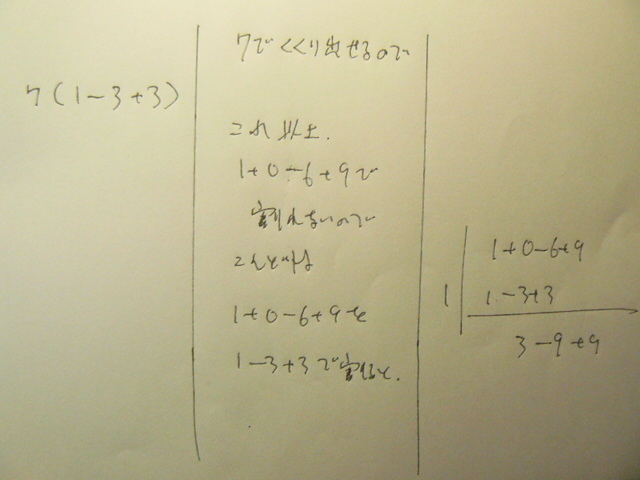 7(1-3+3)
7でくくり出せるので
これ以上.
1+0-6+9で
割れないので
こんどは
1+0-6+9を
1-3+3で割ると.
1+0-6+9
1 1-3+3
3-9+9